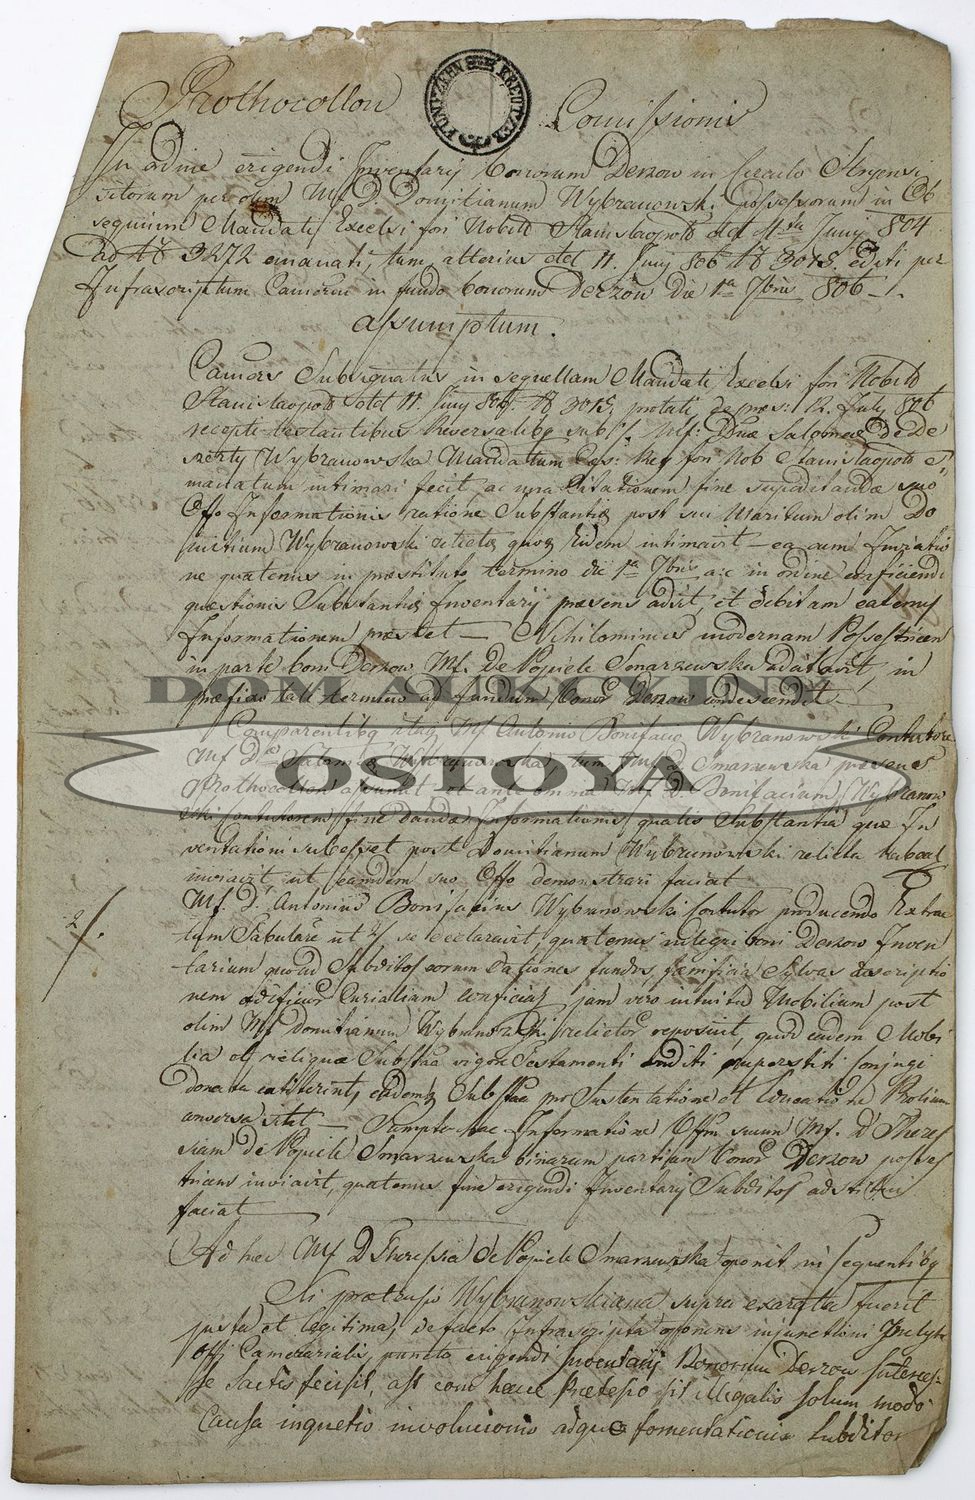 Prothocollon Comissionis
FUNFZEHN KREUTZER
In ordine erigendi Inventarij bonorum Derzow in Circulo Stryensi
sitorum per olim Mf D. Domitianum Wybranowski Possessorum in Ob
sequium Mandati Excelsi fori Nobil Stanislaopol dd 11 Junij 804
ad N 3272 emanati, tum alterius dd 11. Junij 806 N 3015 editi per
Infrascriptum Camerm in fundo bonorum Derzow Die 1a 7bris 806
assumptum.
Camers Subsignatus in sequellam Mandati Excelsi fori Nobil
Stanislaopol dd 11. Junij 806. N 3015, protati, de præs: 12. July 806
recepti testantibus Reversalibq sub Mf: Dnæ Salomeæ De
Wybranowska Mandatum fori Nob Stanislaopol
intimari fecit, ac una Citationem fine suo
Offo Informationis ratione Substantiæ post sui Maritum olim Do
mitium Wybranowski relictæ quoq Eidem intimavit – ea cum
ne quatenus in præstituto termino die 1a 7bris a.c. in ordine conficiendi
quæstionis Substantiæ Inventarij præsens adsit, et debitam eatenus
Informationem præstet – Nihilominus modernam Possestricem
in parte boni Derzow Mf. De Popiele Smarzewska adcitavit, in
præfixo tali termino ad fundum bonor Derzow condescendit
DOM AUKCYJNY
Comparentibq itaq Mf Antonio Bonifacio Wybranowski Contutore
Mf D Salomea Wybranowska, tum D Smarzewska præsens
OSTOYA
Prothocollon assumit et ante omnia Mf D Bonifacium Wybranow
ski Contutorem fine dandæ Informationis qualis Substantia quæ In
ventationi subesset post Domitianum Wybranowski relicta habeat
ut eamdem suo Offo demonstrari faciat
Mf. D. Antonius Bonifacius Wybranowski Contutor producendo Extrac
2/.
tum Tabulare ut se declaravit, quatenus integri boni Derzow Inven
tarium quoad Subditos eorum dationes fundos, familiam Sylvas descriptio
nem ædificior Curialium conficiat, jam vero intuitu Mobilium post
olim Mf Domitianum Wybranowski relictor reposuit, quod eadem Mobi
lia et reliqua Substtia vigore Testamenti superstiti Conjugi
donata extiterint, eademq Substtia pro Sustentatione et Educatione Prolium
– Sumpta hac Informatione Offm suum Mf. D Theres
siam de Popiele Smarzewska binarum partium bonor Derzow posses
tricem inviavit, quatenus fine erigendi Inventarij Subditos
faciat
Ad hæc Mf D Theressia de Popiele Smarzewska oponit in sequentibq
Si prætensio Wybranowskiana supra exarata fuerit
justa et legitima, de facto Infrascripta oponens injunctioni Inclyti
Offj Camerarialis, puncto erigendi Inventarij Bonorum Derzow
se satis fecisset, ast cum hæc Prætensio sit illegalis solum modo
Causa involucionis adque fomentationis Subditor